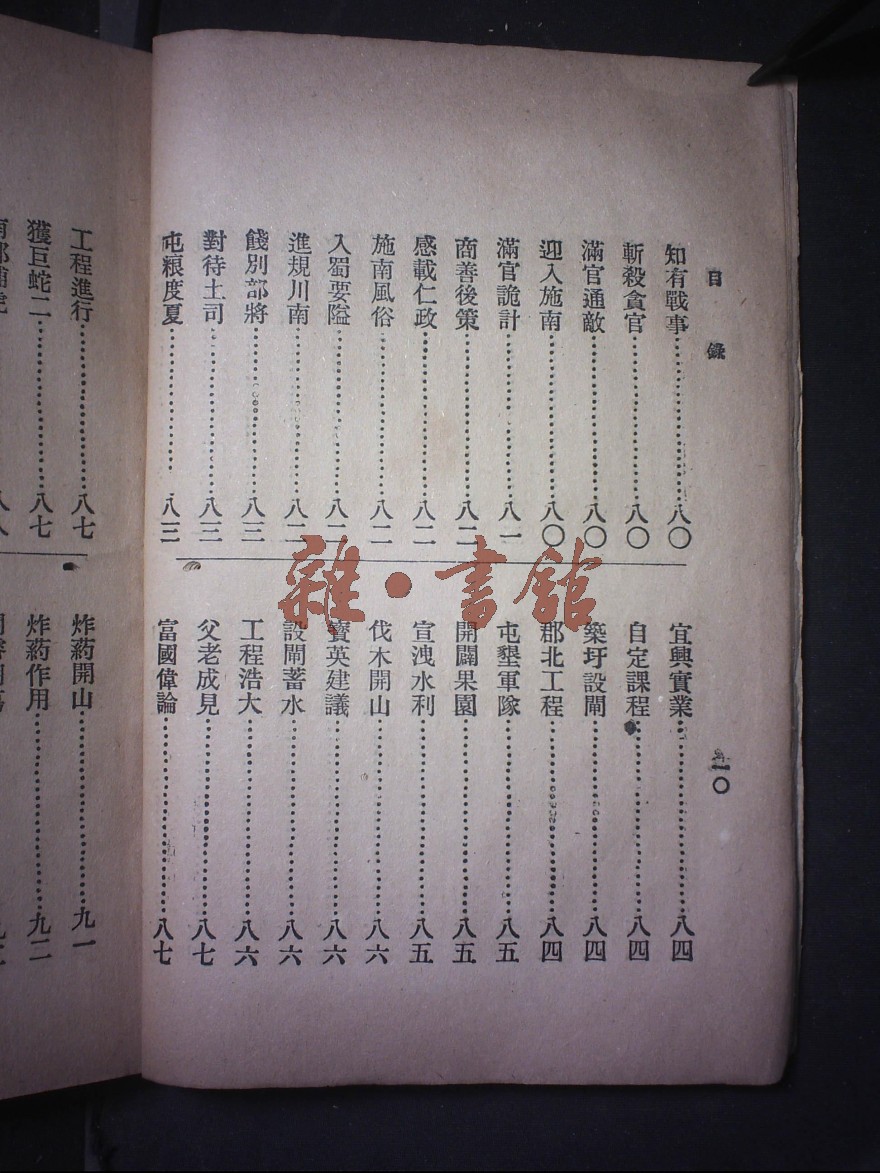 目錄
一〇
知有戰事……八〇
斬殺貪官……八〇
滿官通敵……八〇
迎入施南……八〇
滿官詭計……八一
商善後策……八二
感載仁政……八二
施南風俗……八二
入蜀要隘……八二
進規川南……八二
餞別部將……八三
對待土司……八三
屯粮度夏……八三
宜興實業……八四
自定課程……八四
築圩設閘……八四
郡北工程……八四
屯墾軍隊……八五
開闢果園……八五
宣洩水利……八五
伐木開山……八六
寶英建議……八六
設閘蓄水……八六
工程浩大……八六
父老成見……八七
富國偉論……八七
工程進行……八七
獲巨蛇二……八七
炸药開山……九一
炸药作用……九二
雜·書館